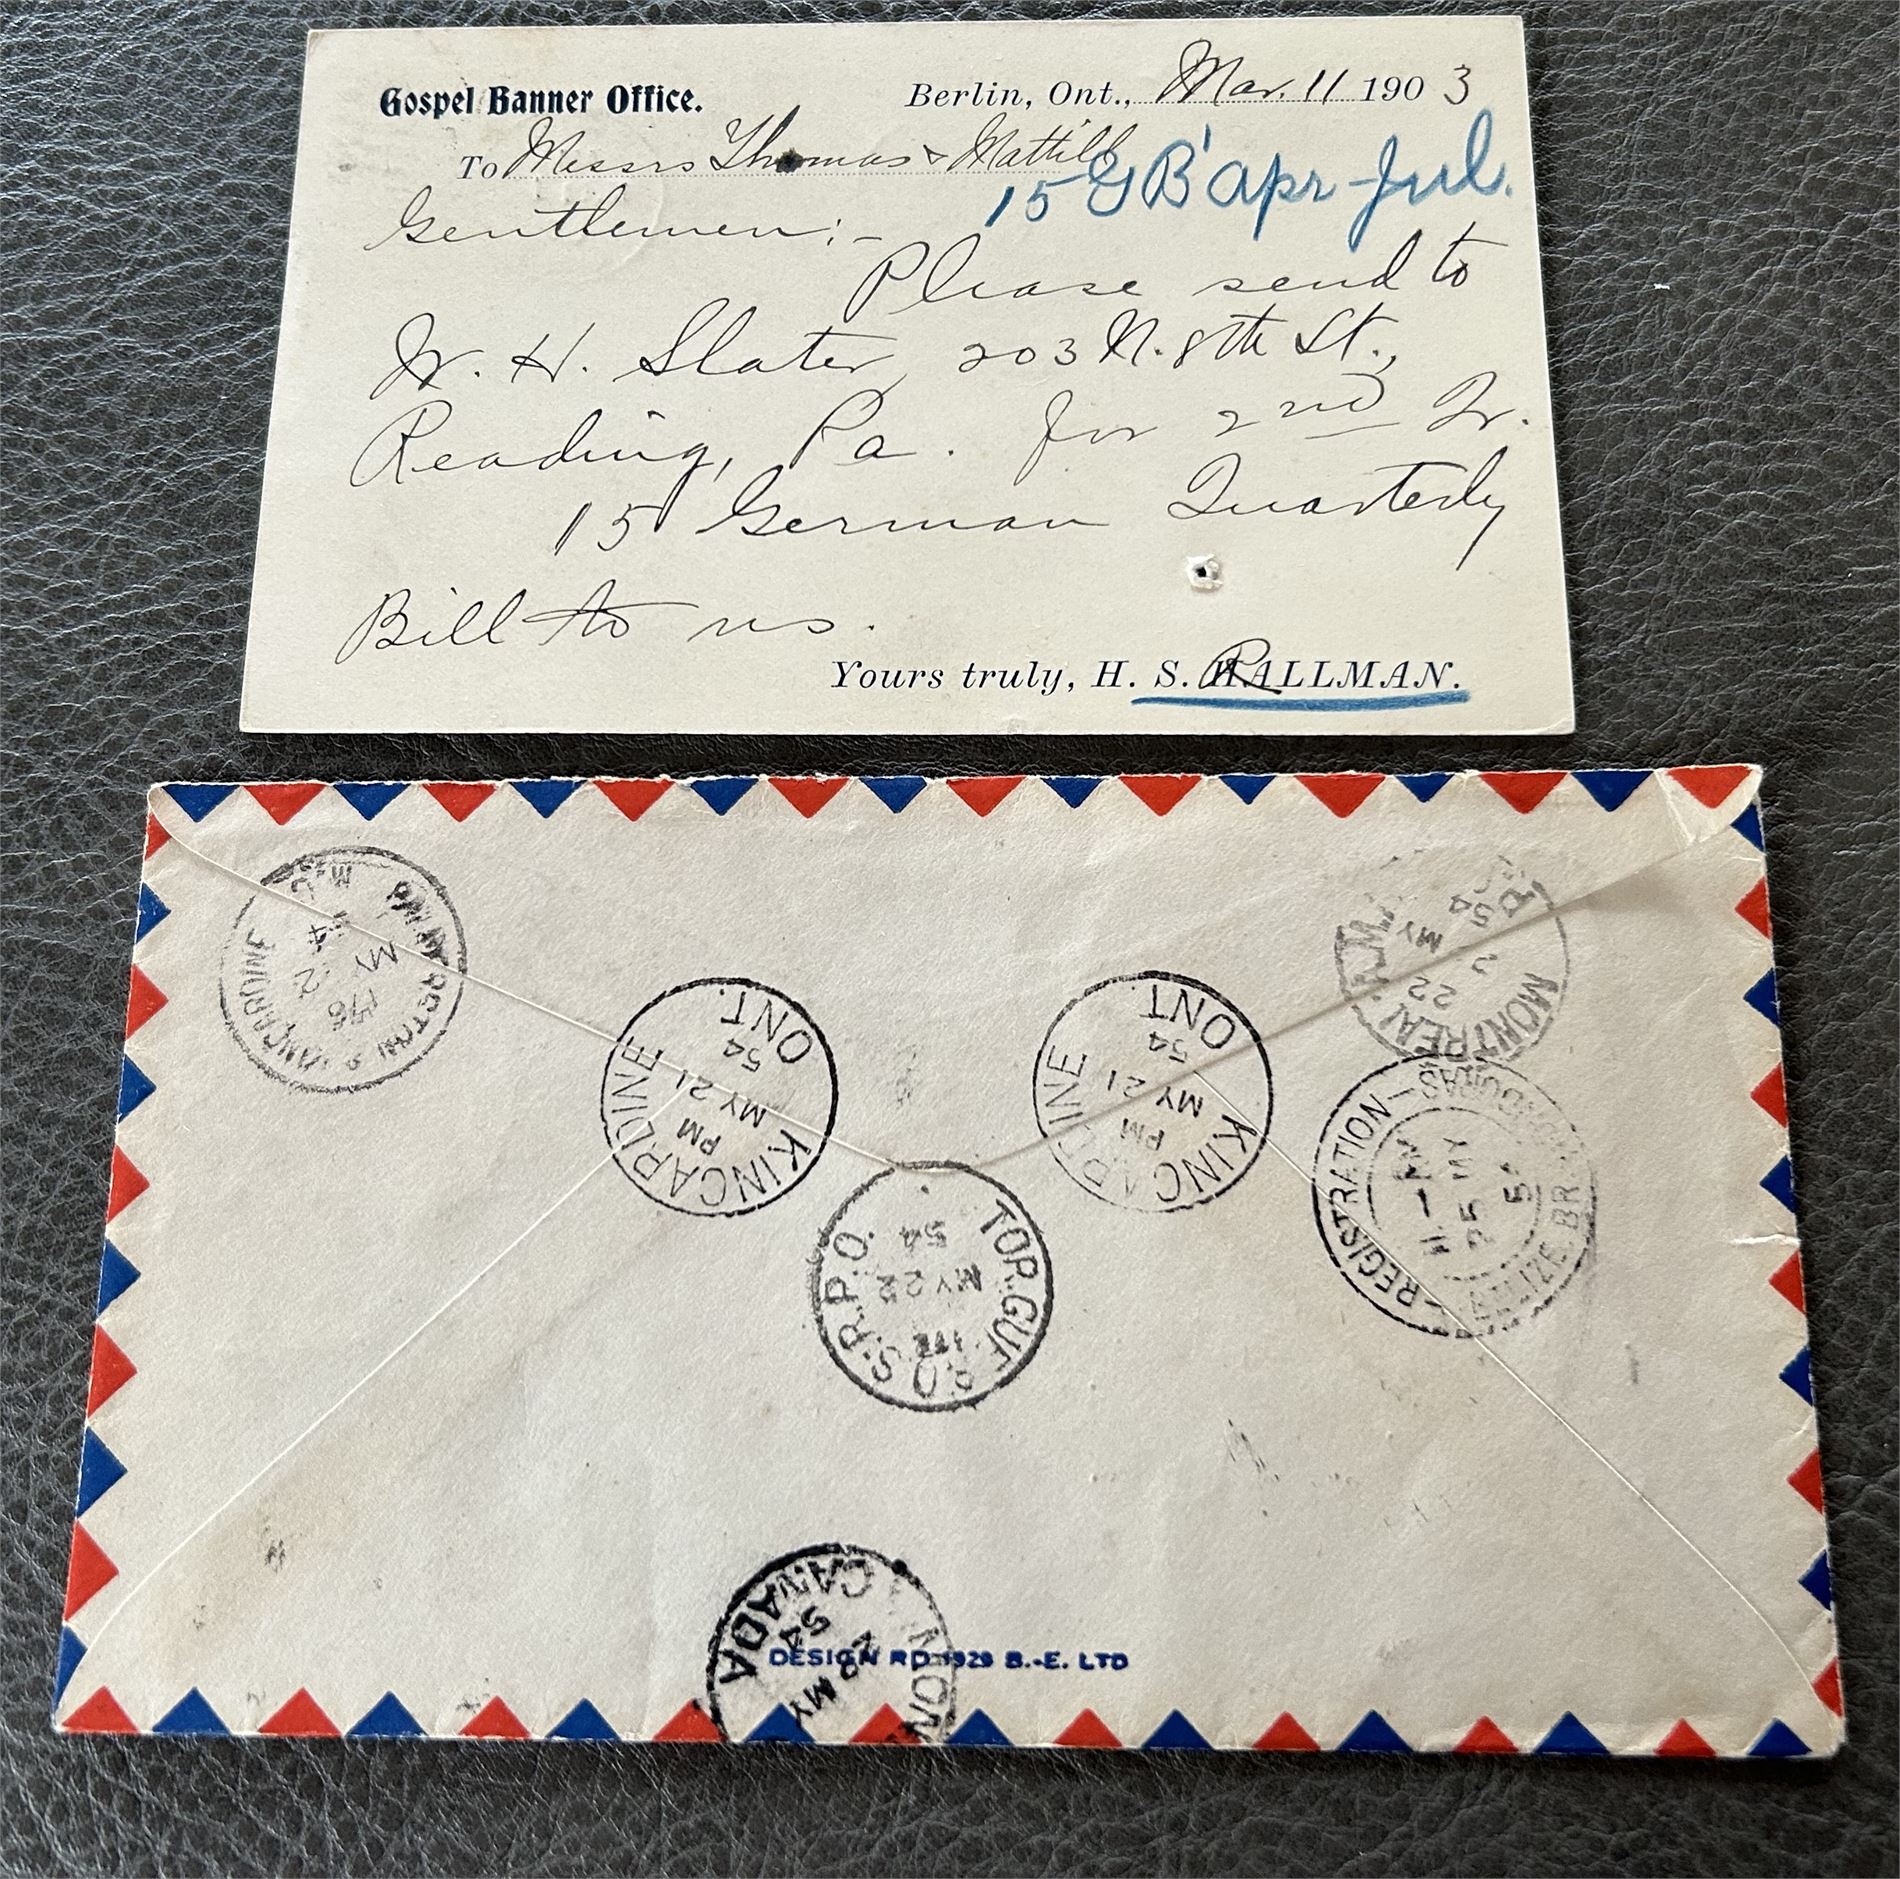 Gospel Banner Office. Berlin, Ont., Mar. 11 1903
To Messrs Thomas & Mattill
15 GB' Apr-Jul.
Gentlemen:-
Please send to
W. H. Slater, 203 N. 8th St.,
Reading, Pa. for 2nd Qr.
15 German Quarterly
Bill to us.
Yours truly, H. S. HALLMAN.
KINCARDINE
MY
KINCARDINE
PM
MY 21
54
ONT.
KINCARDINE
PM
MY 21
54
ONT
MONTREAL
22
MY
54
TOR. GUE. & O.S. R.P.O.
MY 22
54
REGISTRATION
BELIZE BR. HONDURAS
25 MY
54
CANADA
MY
54
DESIGN RD 1929 B.-E. LTD